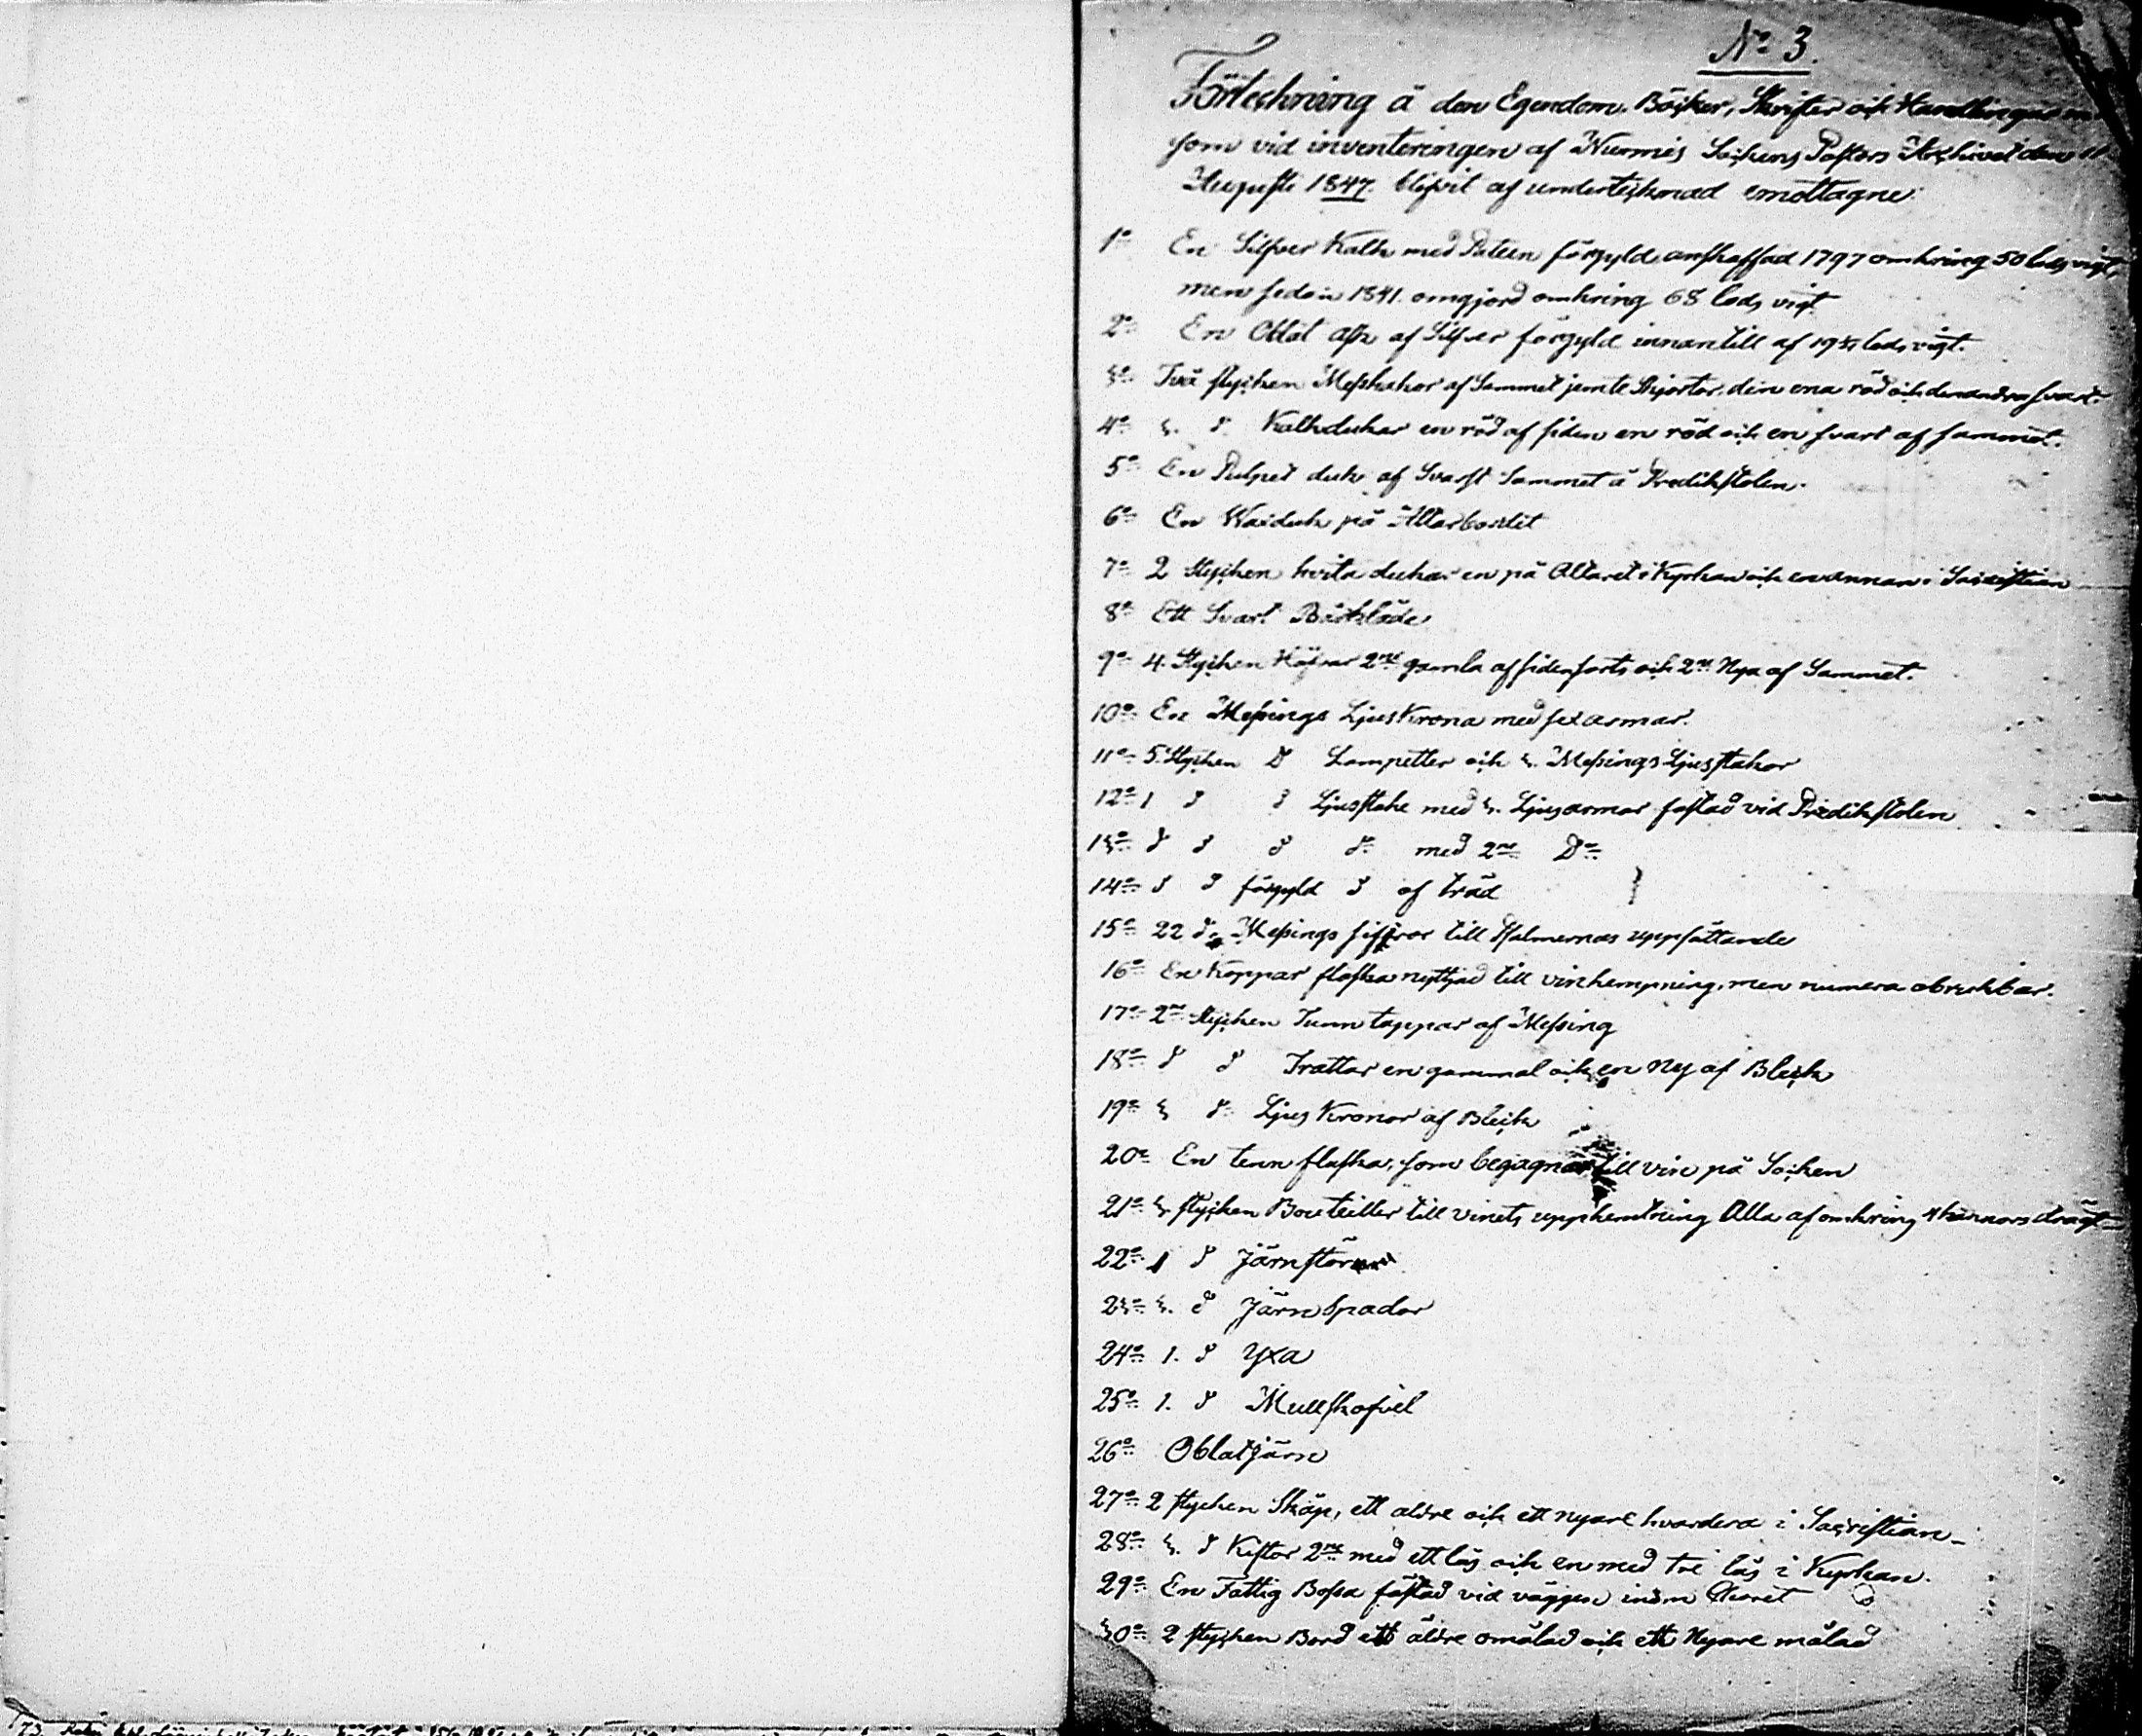 No 3.
Förteckning å den Egendom, Böcker, Skrifter och Handlingar
som vid inventeringen af Nurmis Sockens Pastors Archivet den 11
Augusti 1847 blifvit af undertecknad emottagne:
1o En Silfver Kalk med Pateen förgyld anskaffad 1797 omkring 50 lods vigt,
men sedan 1841. omgjord omkring 68 lods vigt
2o En Oblat ask af Silfver förgyld innantill af lods vigt.
3o Två stycken Messhakar af Sammet jemte Skjortor, den ena röd och den andra svart.
4o 3. d. Kalkdukar en röd af siden en röd och en svart af sammet.
5o En Pulpet duk af Svart Sammet å Predikstolen.
6o En Waxduk på Altarbordet
7o 2 Stycken hvita dukar en på Altaret i Kyrkan och en annan i Sacristian
8o Ett Svart Bårkläde
9o 4. Stycken Håfvar 2ne gamla af siden sorts och 2ne Nya af Sammet.
10o En Messings Ljus Krona med sex armar.
11o 5. Stycken D Lampetter och 3. Messings Ljusstakar
12o 1 d d Ljusstake med 3. Ljusarmar fästad vid Predikstolen
13o d d d d: med 2ne Do
14o d d förgyld d af träd
15o 22 d: Messings siffror till Psalmernas uppsättande
16o En Koppar flaska nyttjad till vinhempning, men numera obrukbar.
17o 2ne stycken Tunn tappar af Messing
18o d d Trattar en gammal och en Ny af Bleck
19o 3 d: Ljus Kronor af Bleck
20o En tenn flaska, som begagnas till vin på Socken
21o 3. stycken Bouteiller till vinets upphemtning Alla af omkring 4 kannors drägt
22o 1 d Järnstör
23o 3. d Järn Spador
24o 1. d Yxa
25o 1. d Mullskofvel
26o Oblatjärn
27o 2 stycken Skåp, ett äldre och ett nyare hvardera i Sacristian
28o 3. d Kistor 2ne med ett lås och en med tre lås i Kyrkan.
29o En Fattig Bössa fästad vid väggen inom Choret
30o 2 stycken Bord ett äldre omålad och ett Nyare målad